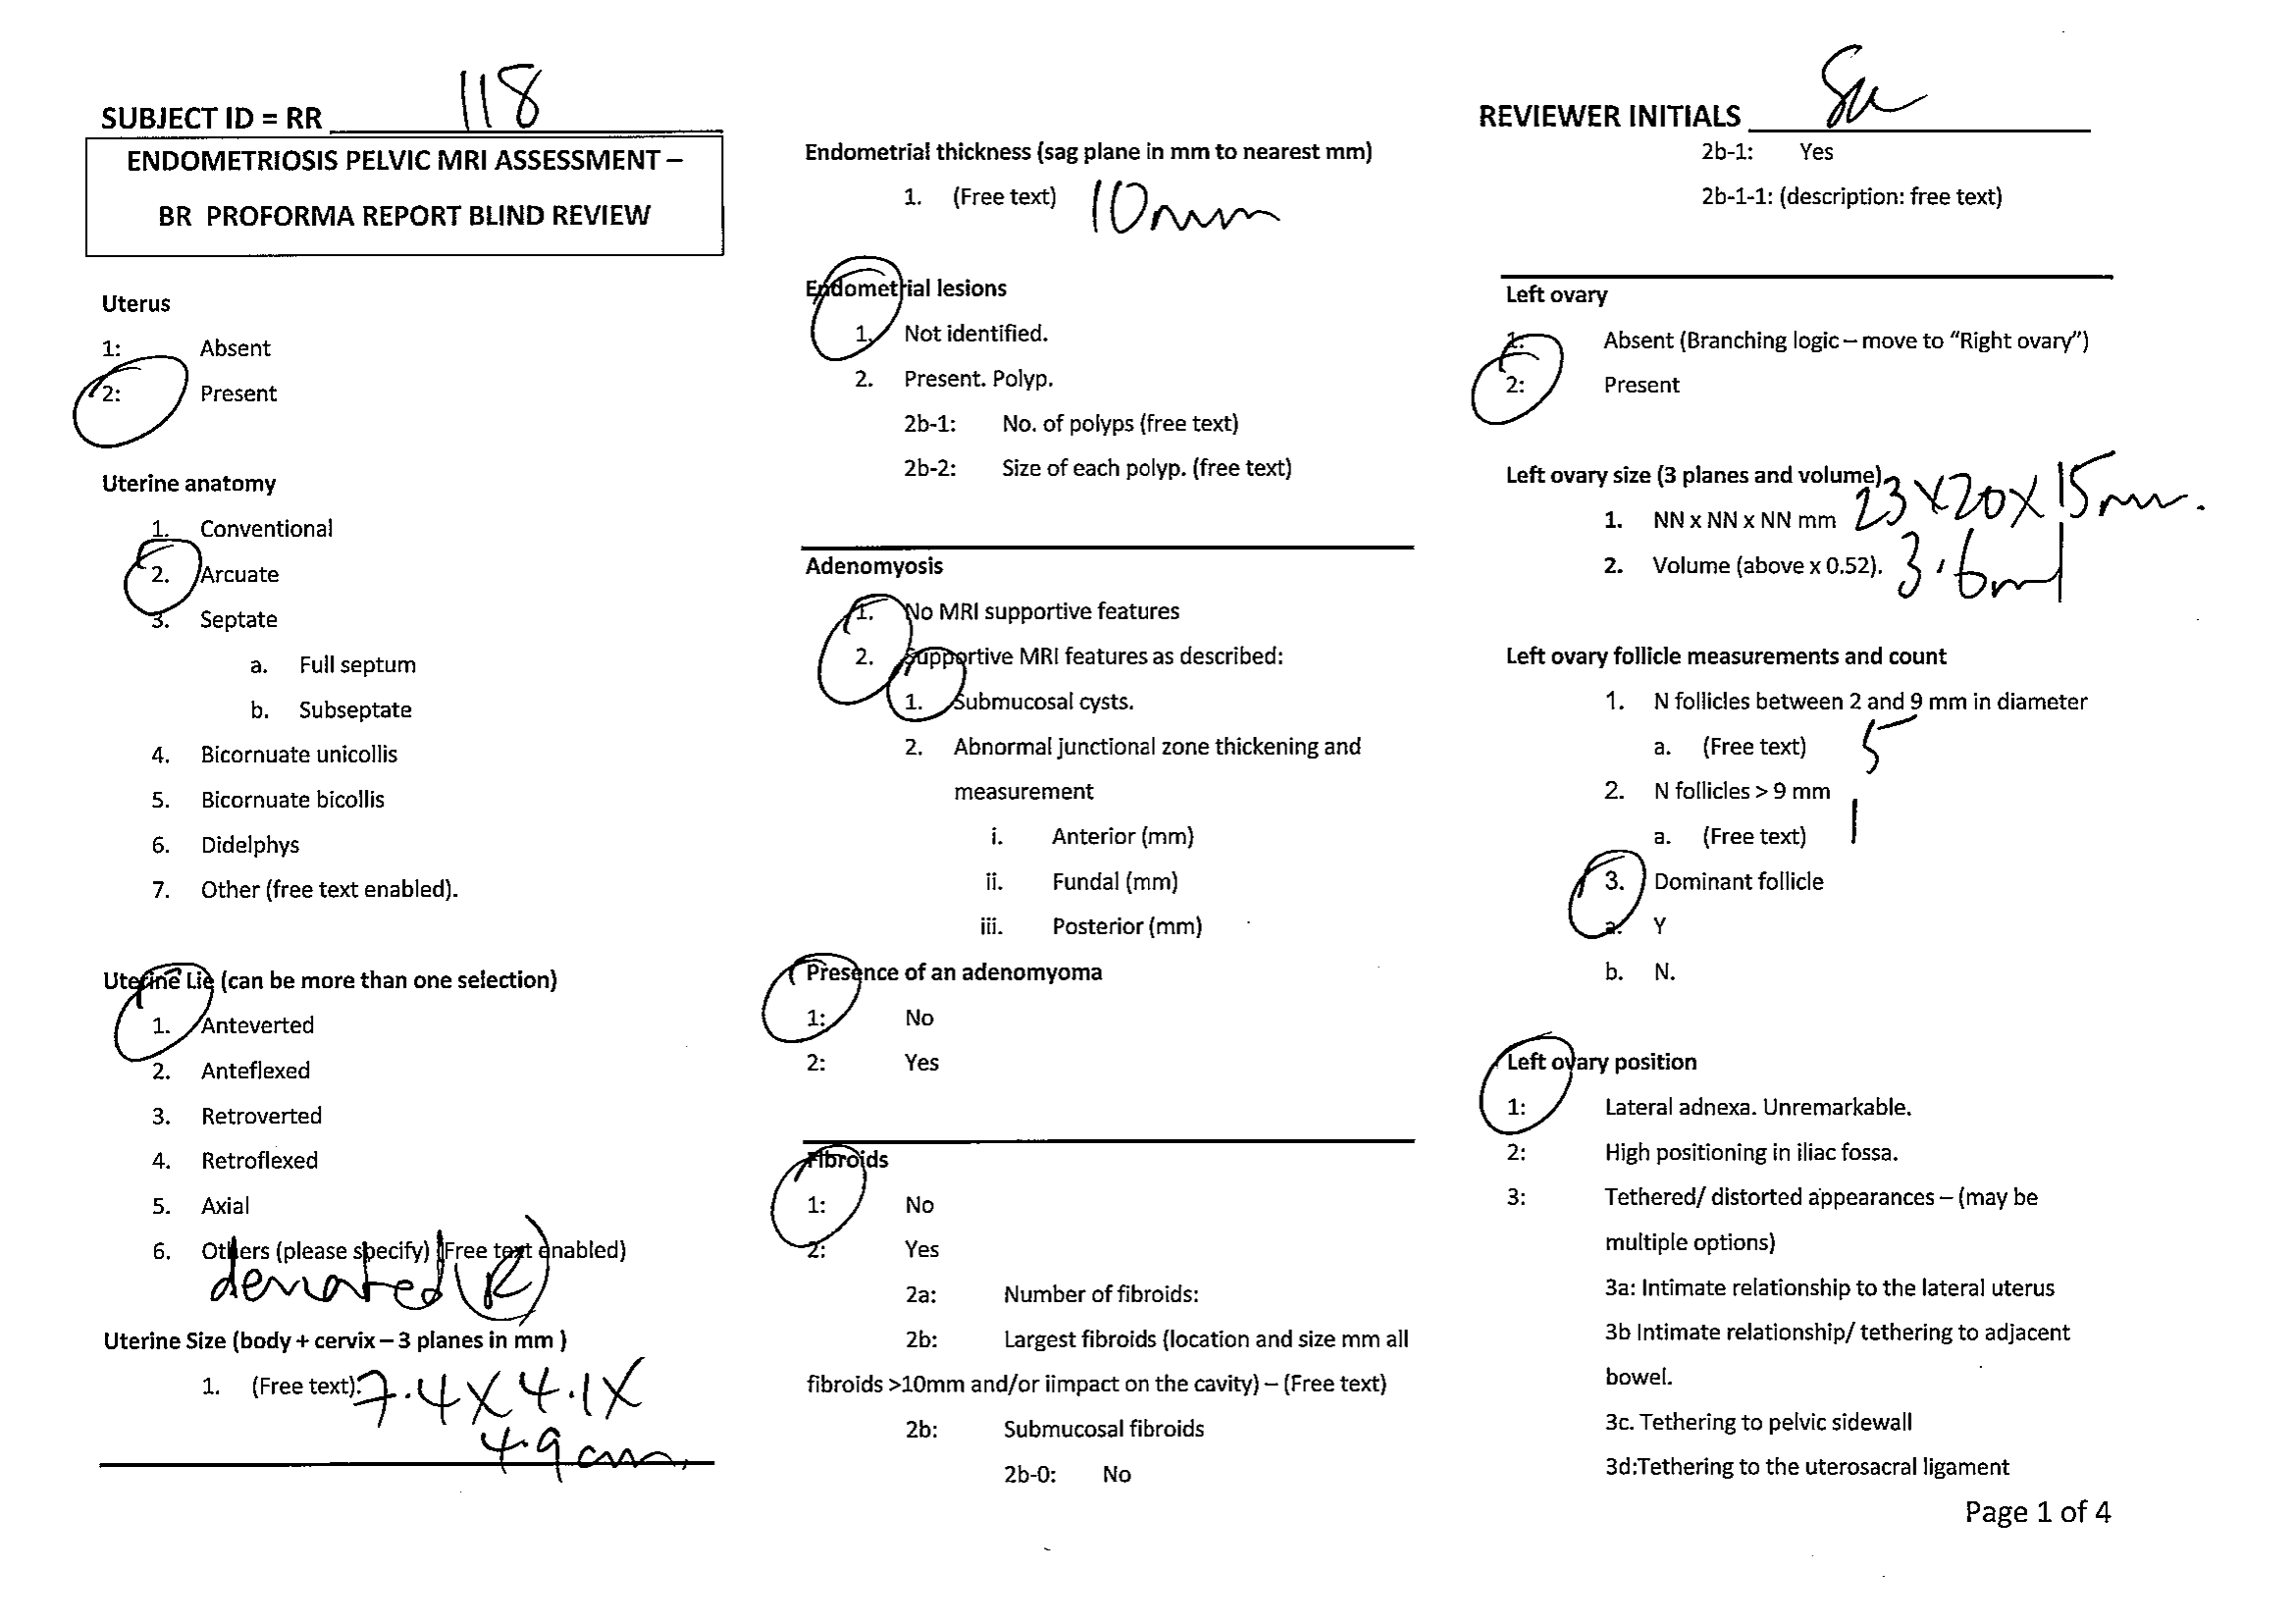 SUBJECT ID = RR 118
ENDOMETRIOSIS PELVIC MRI ASSESSMENT –
BR PROFORMA REPORT BLIND REVIEW
Uterus
1: Absent
2: Present
Uterine anatomy
1. Conventional
2. Arcuate
3. Septate
a. Full septum
b. Subseptate
4. Bicornuate unicollis
5. Bicornuate bicollis
6. Didelphys
7. Other (free text enabled).
Uterine Lie (can be more than one selection)
1. Anteverted
2. Anteflexed
3. Retroverted
4. Retroflexed
5. Axial
6. Others (please specify) (Free text enabled)
deviated R
Uterine Size (body + cervix – 3 planes in mm )
1. (Free text). 7.4 X 4.1 X
4.9 cm.
Endometrial thickness (sag plane in mm to nearest mm)
1. (Free text) 10mm
Endometrial lesions
1. Not identified.
2. Present. Polyp.
2b-1: No. of polyps (free text)
2b-2: Size of each polyp. (free text)
Adenomyosis
1. No MRI supportive features
2. Supportive MRI features as described:
1. Submucosal cysts.
2. Abnormal junctional zone thickening and
measurement
i. Anterior (mm)
ii. Fundal (mm)
iii. Posterior (mm)
Presence of an adenomyoma
1: No
2: Yes
Fibroids
1: No
2: Yes
2a: Number of fibroids:
2b: Largest fibroids (location and size mm all
fibroids >10mm and/or iimpact on the cavity) – (Free text)
2b: Submucosal fibroids
2b-0: No
REVIEWER INITIALS
2b-1: Yes
2b-1-1: (description: free text)
Left ovary
1: Absent (Branching logic – move to “Right ovary”)
2: Present
Left ovary size (3 planes and volume)
1. NN x NN x NN mm 23 X 20 X 15mm.
2. Volume (above x 0.52). 3.6ml
Left ovary follicle measurements and count
1. N follicles between 2 and 9 mm in diameter
a. (Free text) 5
2. N follicles > 9 mm
a. (Free text) 1
3. Dominant follicle
a. Y
b. N.
Left ovary position
1: Lateral adnexa. Unremarkable.
2: High positioning in iliac fossa.
3: Tethered/ distorted appearances – (may be
multiple options)
3a: Intimate relationship to the lateral uterus
3b Intimate relationship/ tethering to adjacent
bowel.
3c. Tethering to pelvic sidewall
3d:Tethering to the uterosacral ligament
Page 1 of 4